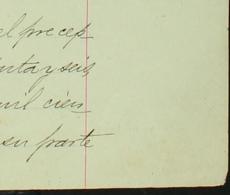 el precep
inta y seis
mil cien
su parte